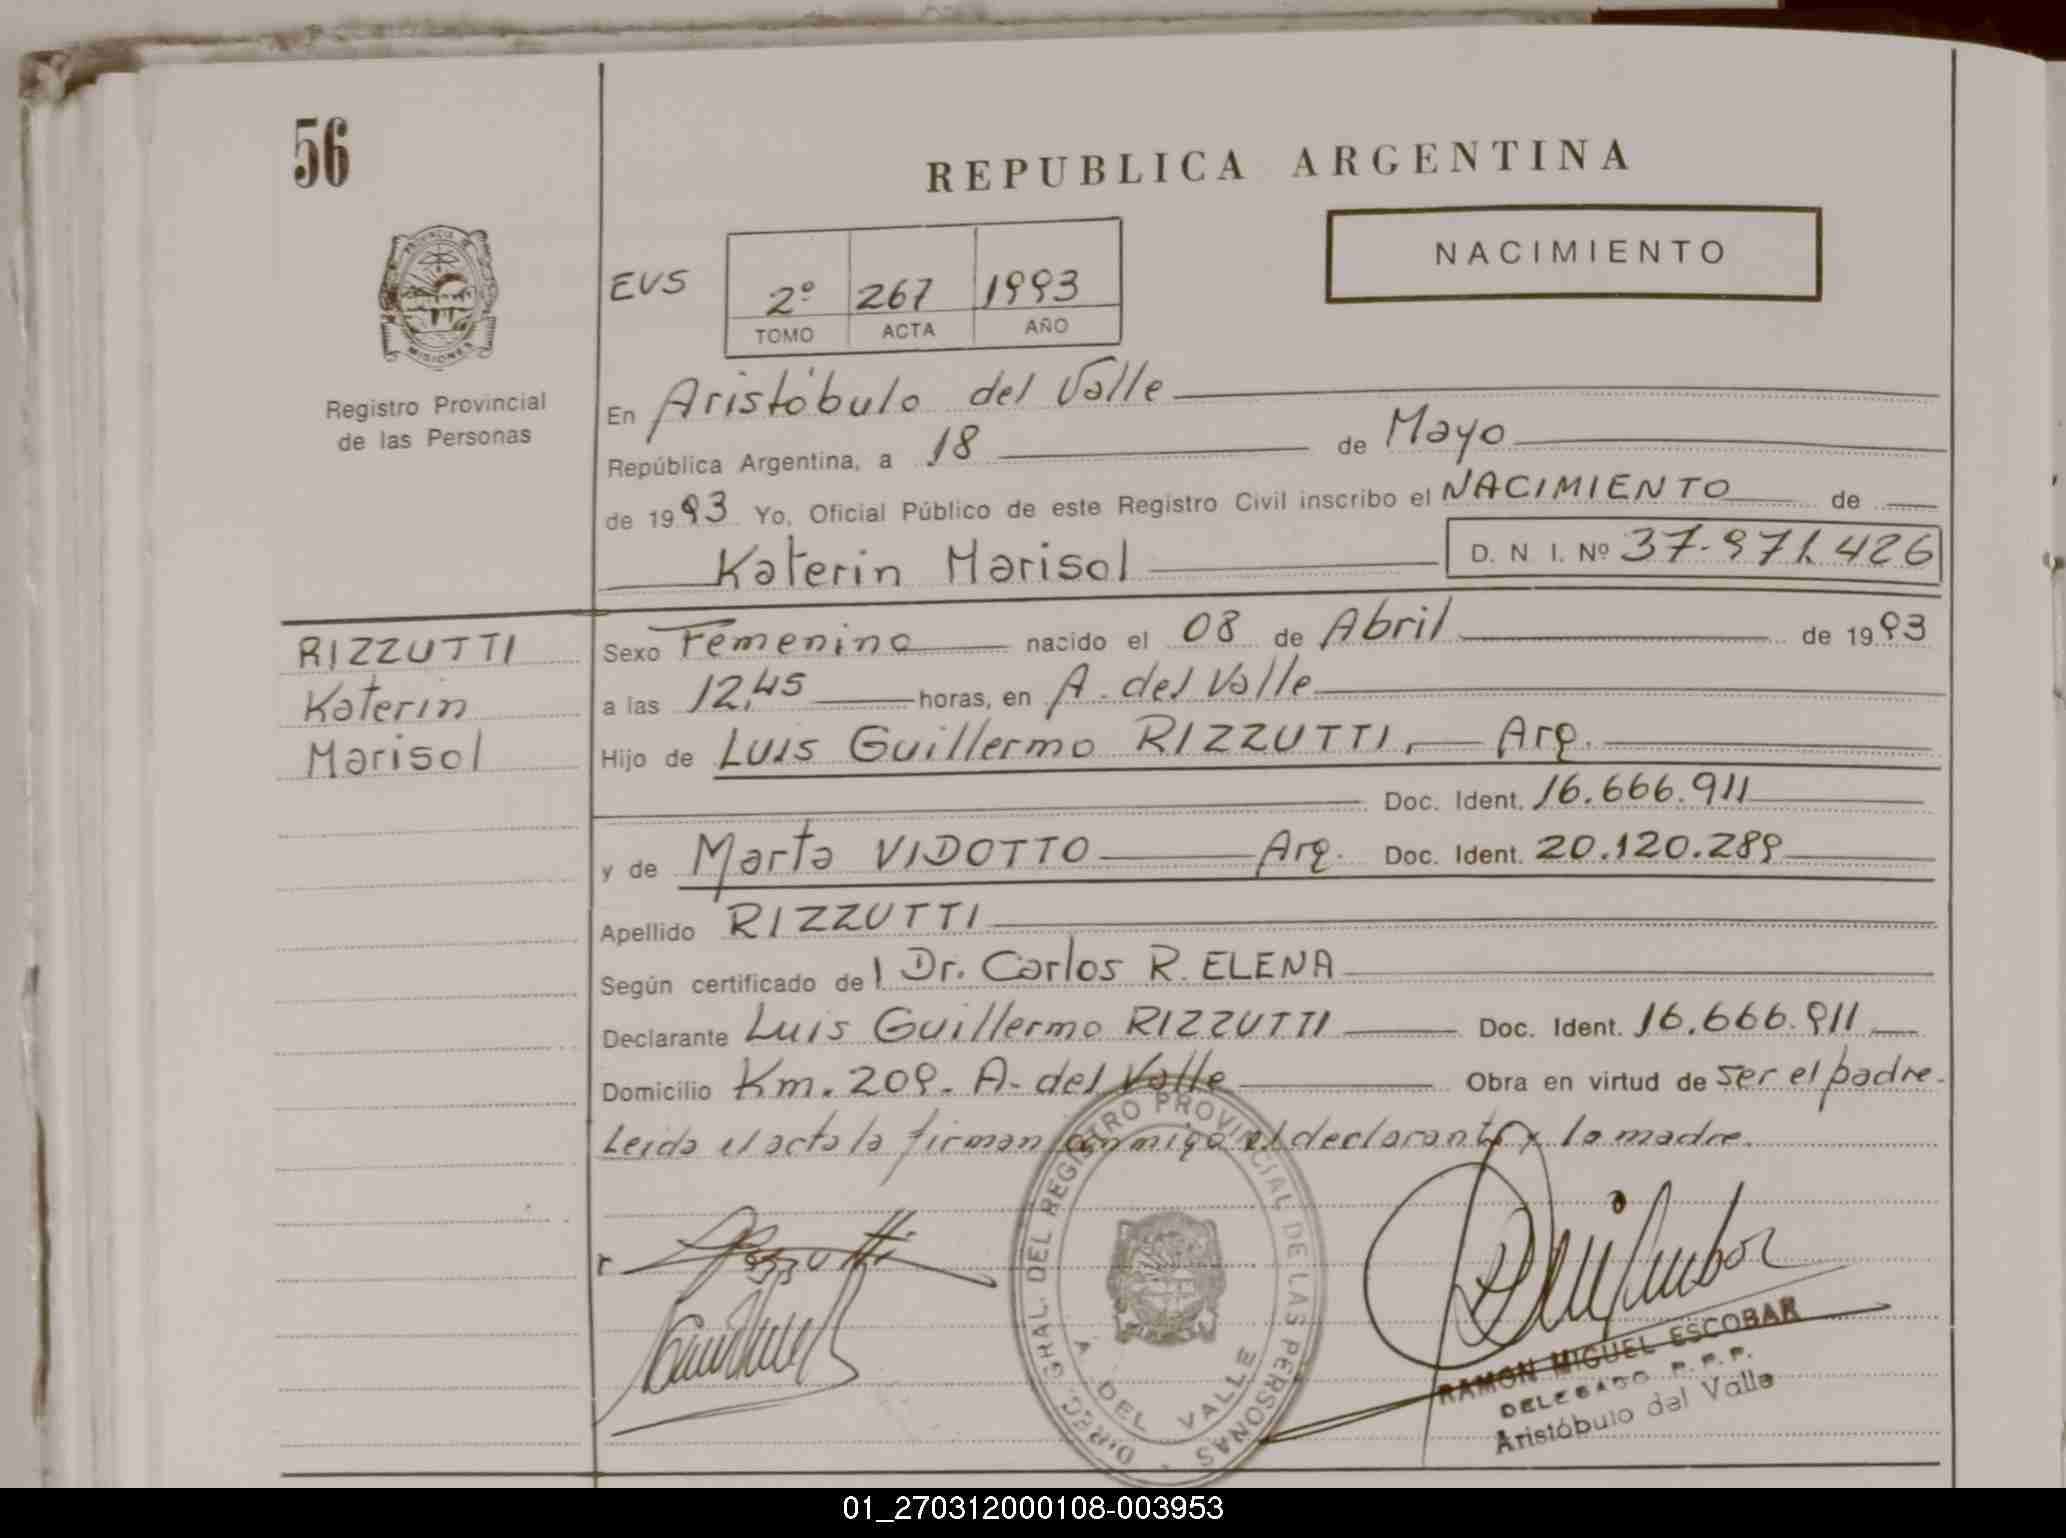 56
REPUBLICA ARGENTINA
NACIMIENTO
PROVINCIA DE
MISIONES
Registro Provincial
de las Personas
EVS
2º 267 1993
TOMO ACTA AÑO
En Aristóbulo del Valle
República Argentina, a 18 de Mayo
de 1993 Yo, Oficial Público de este Registro Civil inscribo el NACIMIENTO de
Katerin Marisol D. N. I. Nº 37.971.426
RIZZUTTI
Katerin
Marisol
Sexo Femenino nacido el 08 de Abril de 1993
a las 12,45 horas, en A. del Valle
Hijo de Luis Guillermo RIZZUTTI, Arg.
Doc. Ident. 16.666.911
y de Marta VIDOTTO Arg. Doc. Ident. 20.120.289
Apellido RIZZUTTI
Según certificado del Dr. Carlos R. ELENA
Declarante Luis Guillermo RIZZUTTI Doc. Ident. 16.666.911
Domicilio Km. 209. A. del Valle Obra en virtud de ser el padre.
Leida el acta la firman conmigo el declarante y la madre.
DIREC. GRAL. DEL REGISTRO PROVINCIAL DE LAS PERSONAS
A. DEL VALLE
RAMON MIGUEL ESCOBAR
DELEGADO R.P.P.
Aristóbulo del Valle
01_270312000108-003953